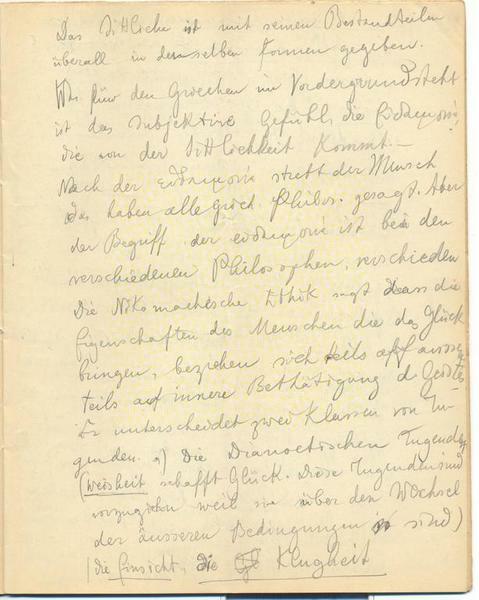 Das Sittliche ist mit seinen Bestandteilen
überall in denselben Formen gegeben.
Was für den Griechen im Vordergrund steht
ist das subjektive Gefühl, die
die von der Sittlichkeit kommt. —
Nach der strebt der Mensch
das haben alle griech. Philos. gesagt. Aber
der Begriff der ist bei den
verschiedenen Philosophen, verschieden
Die Nikomachische Ethik sagt dass die
Eigenschaften des Menschen die das Glück
bringen, beziehen sich teils auf äussere
teils auf innere Bethätigung d. Geistes
Er unterscheidet zwei Klassen von Tu-
genden. a) Die Dianoetischen Tugenden
(Weisheit schafft Glück. Diese Tugenden sind
vorzuziehen weil sie über den Wechsel
der äusseren Bedingungen sind)
(die Einsicht, die Klugheit